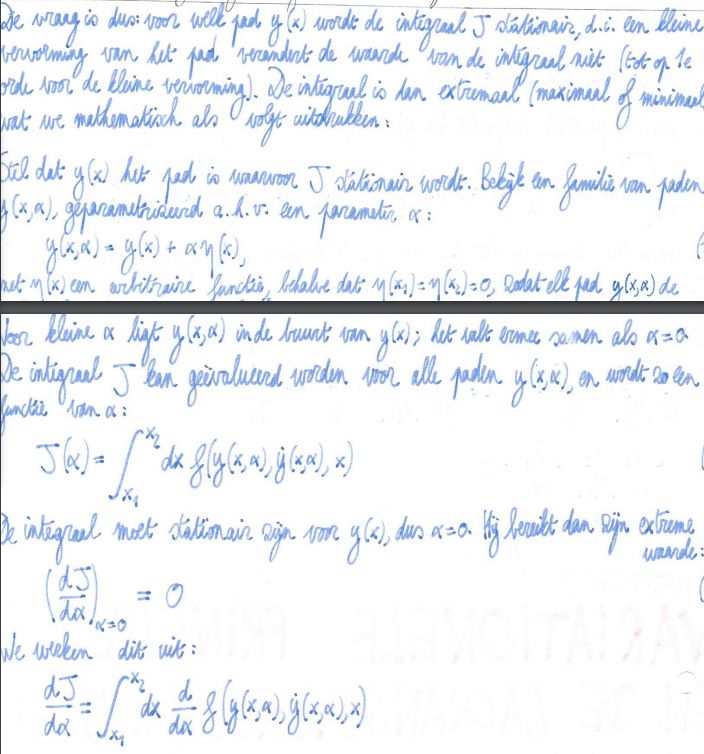 De vraag is dus: voor welk pad y(x) wordt de integraal J stationair, d.i. een kleine
vervorming van het pad verandert de waarde van de integraal niet (tot op 1e
orde voor de kleine vervorming). De integraal is dan extremaal (maximaal of minimaal
wat we mathematisch als volgt uitdrukken:
Stel dat y(x) het pad is waarvoor J stationair wordt. Bekijk een familie van paden
y(x,α), geparametriseerd a.h.v. een parameter α:
y(x,α) = y(x) + α η(x),
met η(x) een arbitraire functie, behalve dat η(x₁) = η(x₂) = 0, zodat elk pad y(x,α) de
Voor kleine α ligt y(x,α) in de buurt van y(x); het valt ermee samen als α=0
De integraal J kan geëvalueerd worden voor alle paden y(x,α), en wordt zo een
functie van α:
J(α) = ∫_{x₁}^{x₂} dx f(y(x,α), ẏ(x,α), x)
De integraal moet stationair zijn voor y(x), dus α=0. Hij bereikt dan zijn extreme
waarde:
(dJ/dα)_{α=0} = 0
We werken dit uit:
dJ/dα = ∫_{x₁}^{x₂} dx d/dα f(y(x,α), ẏ(x,α), x)